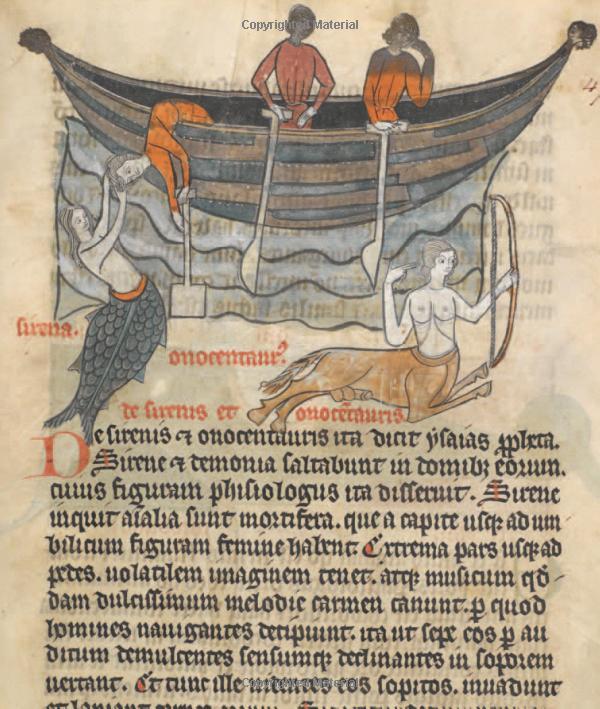 Copyrighted Material
sirena.
onocentaur⁹
de sirenis et onocētauris
De sirenis ⁊ onocentauris ita dicit ysaias ꝓph̄eta.
Sirene ⁊ demonia saltabunt in domibꝫ eorum.
cuius figuram phisiologus ita disseruit. Sirene
inquit aīalia sunt mortifera. que a capite usqꝫ ad um
bilicum figuram femine habent Extrema pars usqꝫ ad
pedes. uolatilem imaginem tenet. atqꝫ musicum qd̄
dam dulcissimum melodie carmen canunt. ꝑ quod
homines nauigantes decipiunt. ita ut sepe eos ꝑ au
ditum demulcentes sensumqꝫ declinantes in soporem
uertant. Et tunc ille uidentes eos sopitos. inuadunt
Copyrighted Material
et laniant carnes eorum.